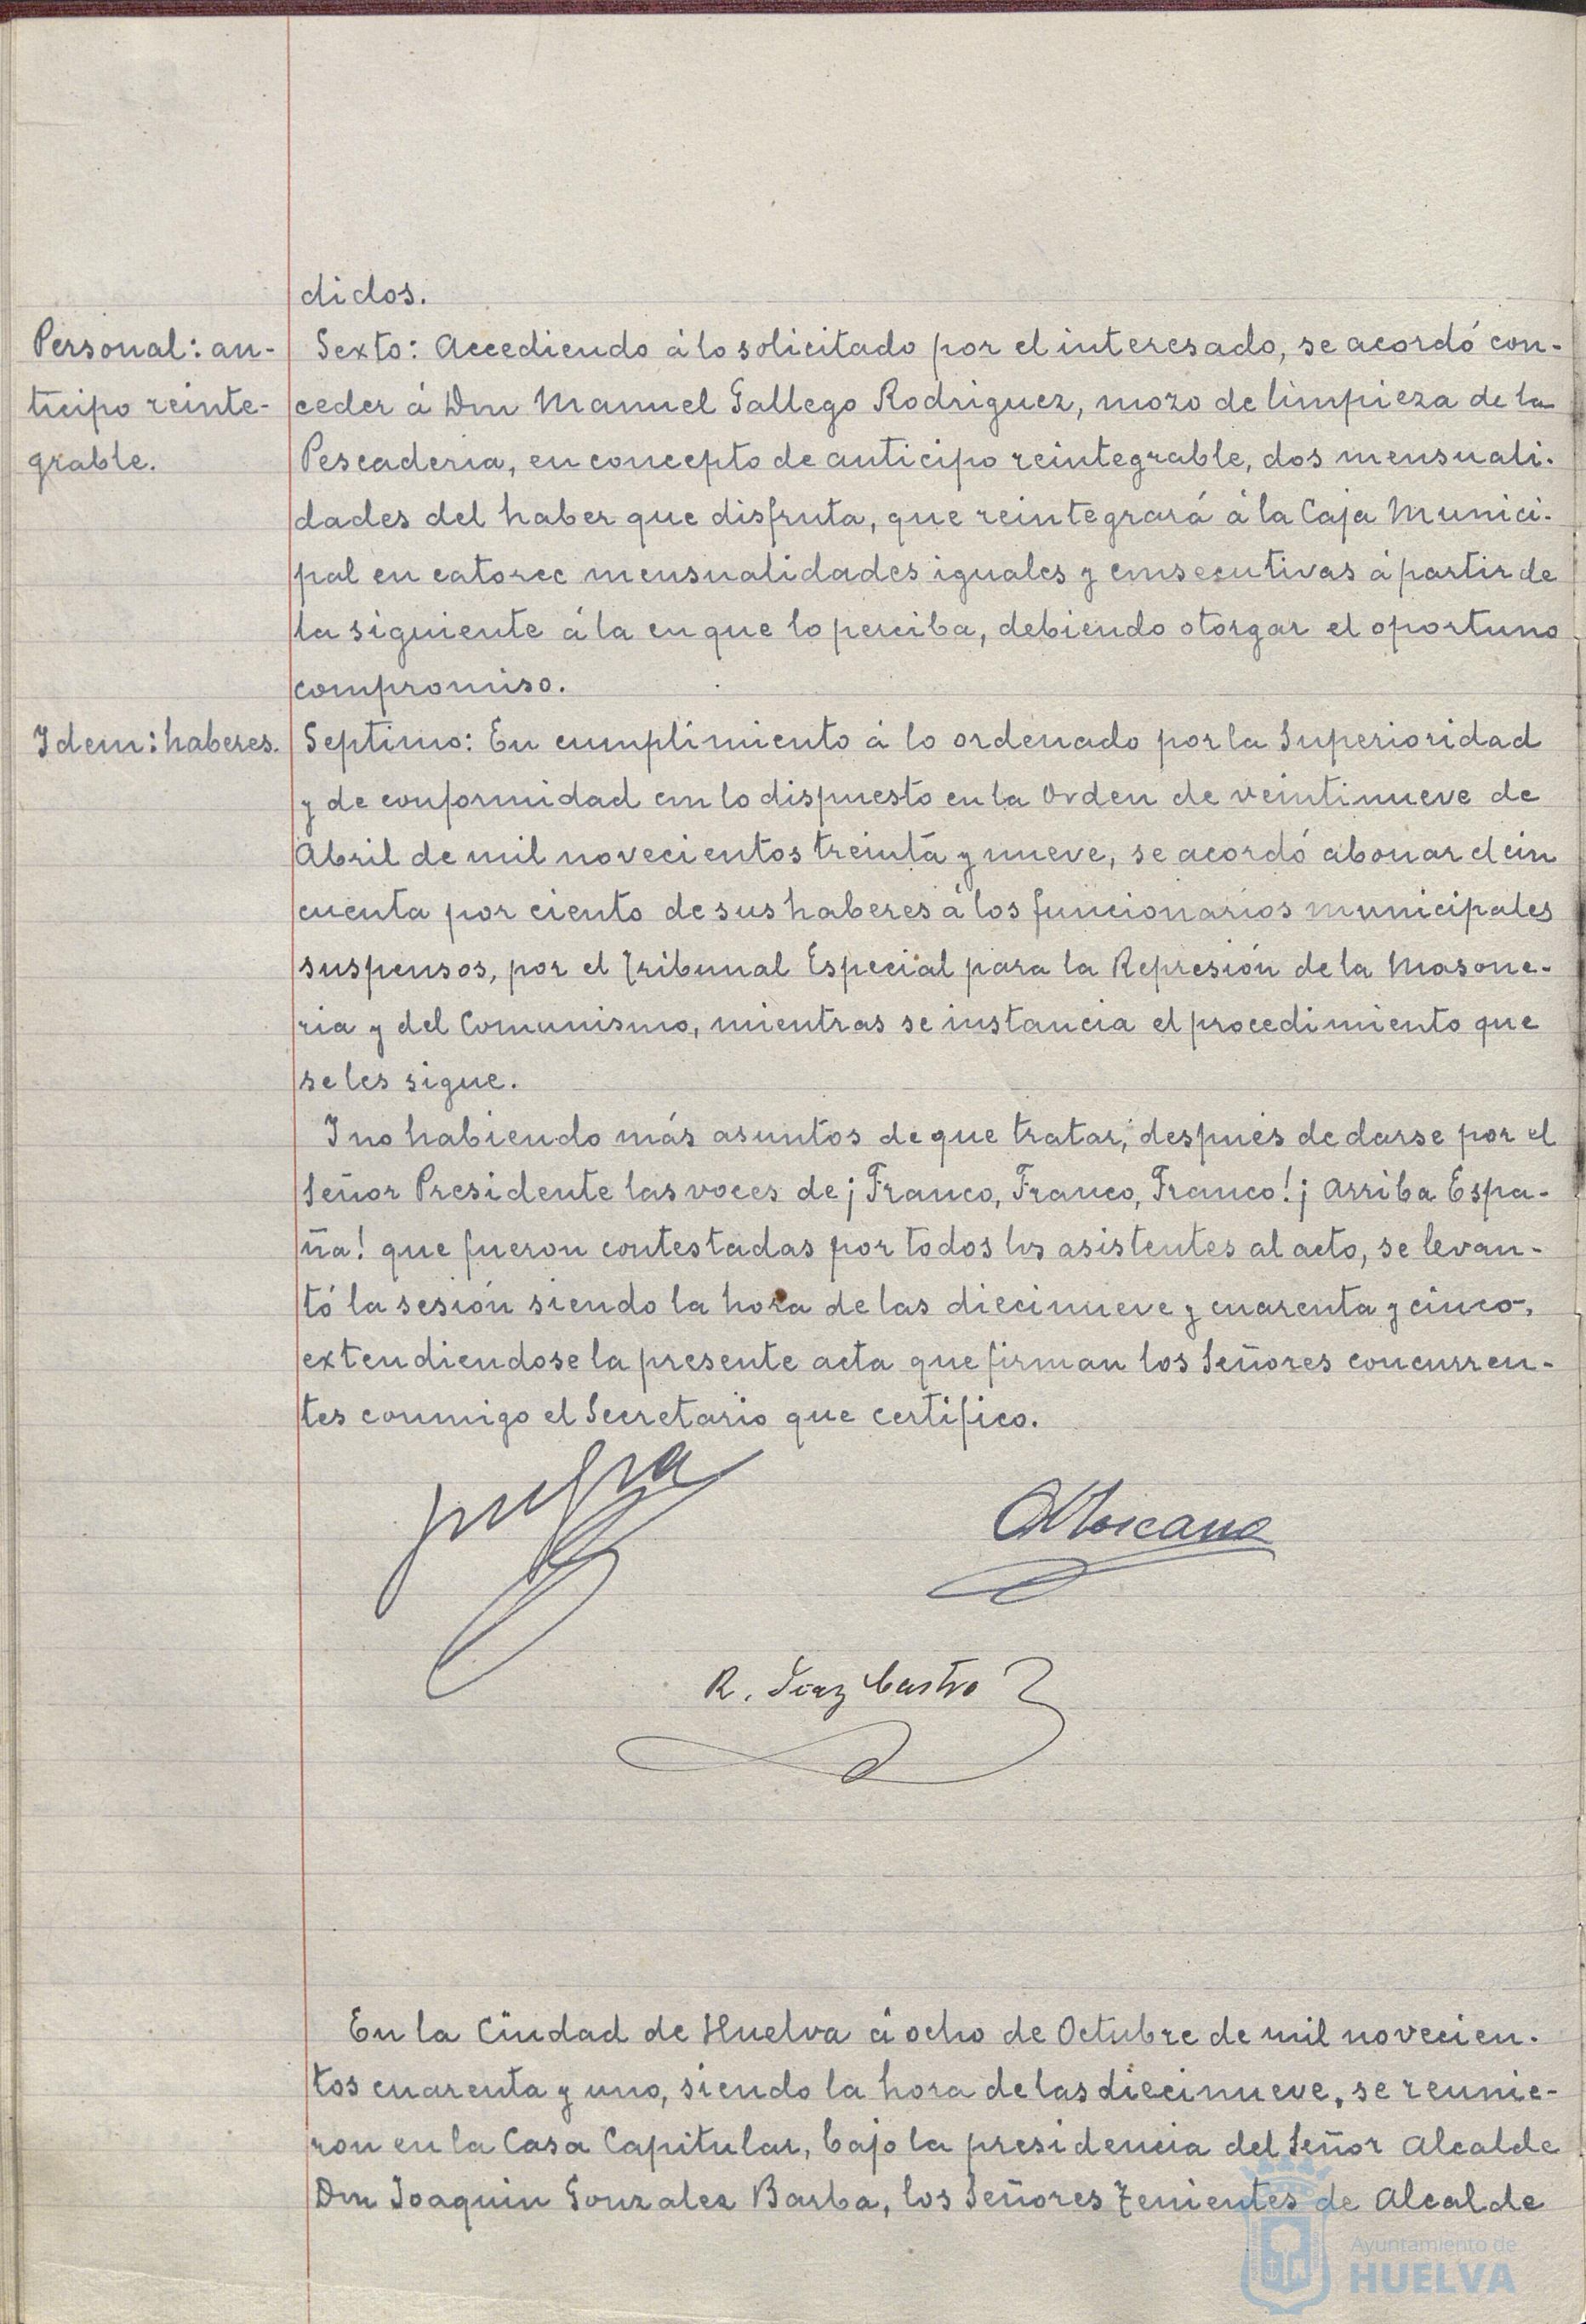 didos.
Personal: an-
ticipo reinte-
grable.
Sexto: Accediendo á lo solicitado por el interesado, se acordó con-
ceder á Don Manuel Gallego Rodriguez, mozo de limpieza de la
Pescaderia, en concepto de anticipo reintegrable, dos mensuali-
dades del haber que disfruta, que reintegrará á la Caja Munici-
pal en catorce mensualidades iguales y consecutivas á partir de
la siguiente á la en que lo perciba, debiendo otorgar el oportuno
compromiso.
Idem: haberes.
Septimo: En cumplimiento á lo ordenado por la Superioridad
y de conformidad con lo dispuesto en la Orden de veintinueve de
Abril de mil novecientos treinta y nueve, se acordó abonar el cin
cuenta por ciento de sus haberes á los funcionarios municipales
suspensos, por el Tribunal Especial para la Represión de la Masone-
ria y del Comunismo, mientras se instancia el procedimiento que
se les sigue.
Y no habiendo más asuntos de que tratar, después de darse por el
Señor Presidente las voces de ¡Franco, Franco, Franco! ¡Arriba Espa-
ña! que fueron contestadas por todos los asistentes al acto, se levan-
tó la sesión siendo la hora de las diecinueve y cuarenta y cinco,
extendiendose la presente acta que firman los Señores concurren-
tes conmigo el Secretario que certifico.
R. Diaz Castro
En la Ciudad de Huelva á ocho de Octubre de mil novecien-
tos cuarenta y uno, siendo la hora de las diecinueve, se reunie-
ron en la Casa Capitular, bajo la presidencia del Señor Alcalde
Don Joaquin Gonzalez Barba, los Señores Tenientes de Alcalde
Ayuntamiento de
HUELVA